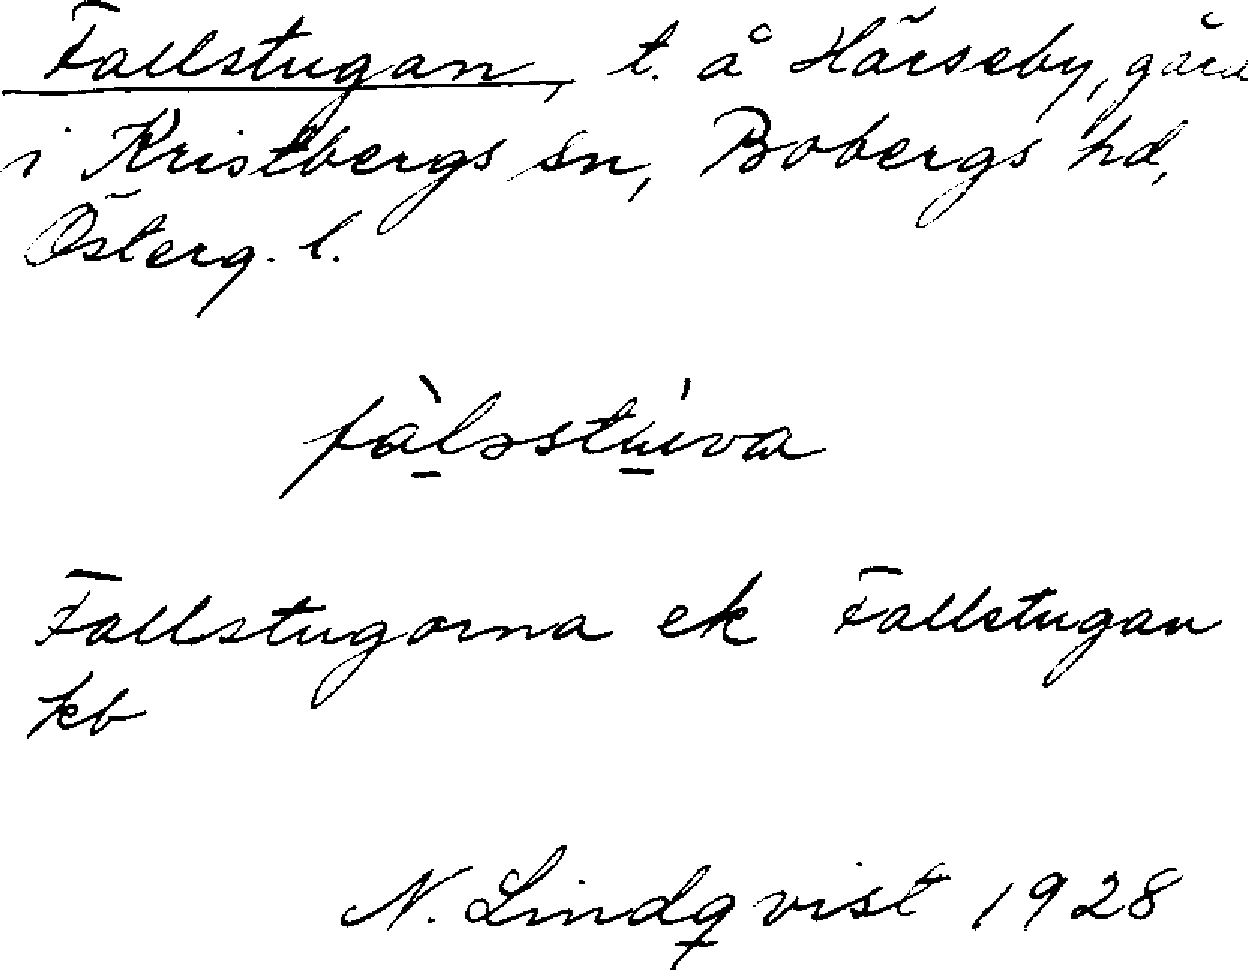 Fallstugan, t. å Härseby, gård
i Kristbergs sn, Bobergs hd,
Österg. l.
fàlsstúva
Fallstugorna ek Fallstugan
kb
N. Lindqvist 1928